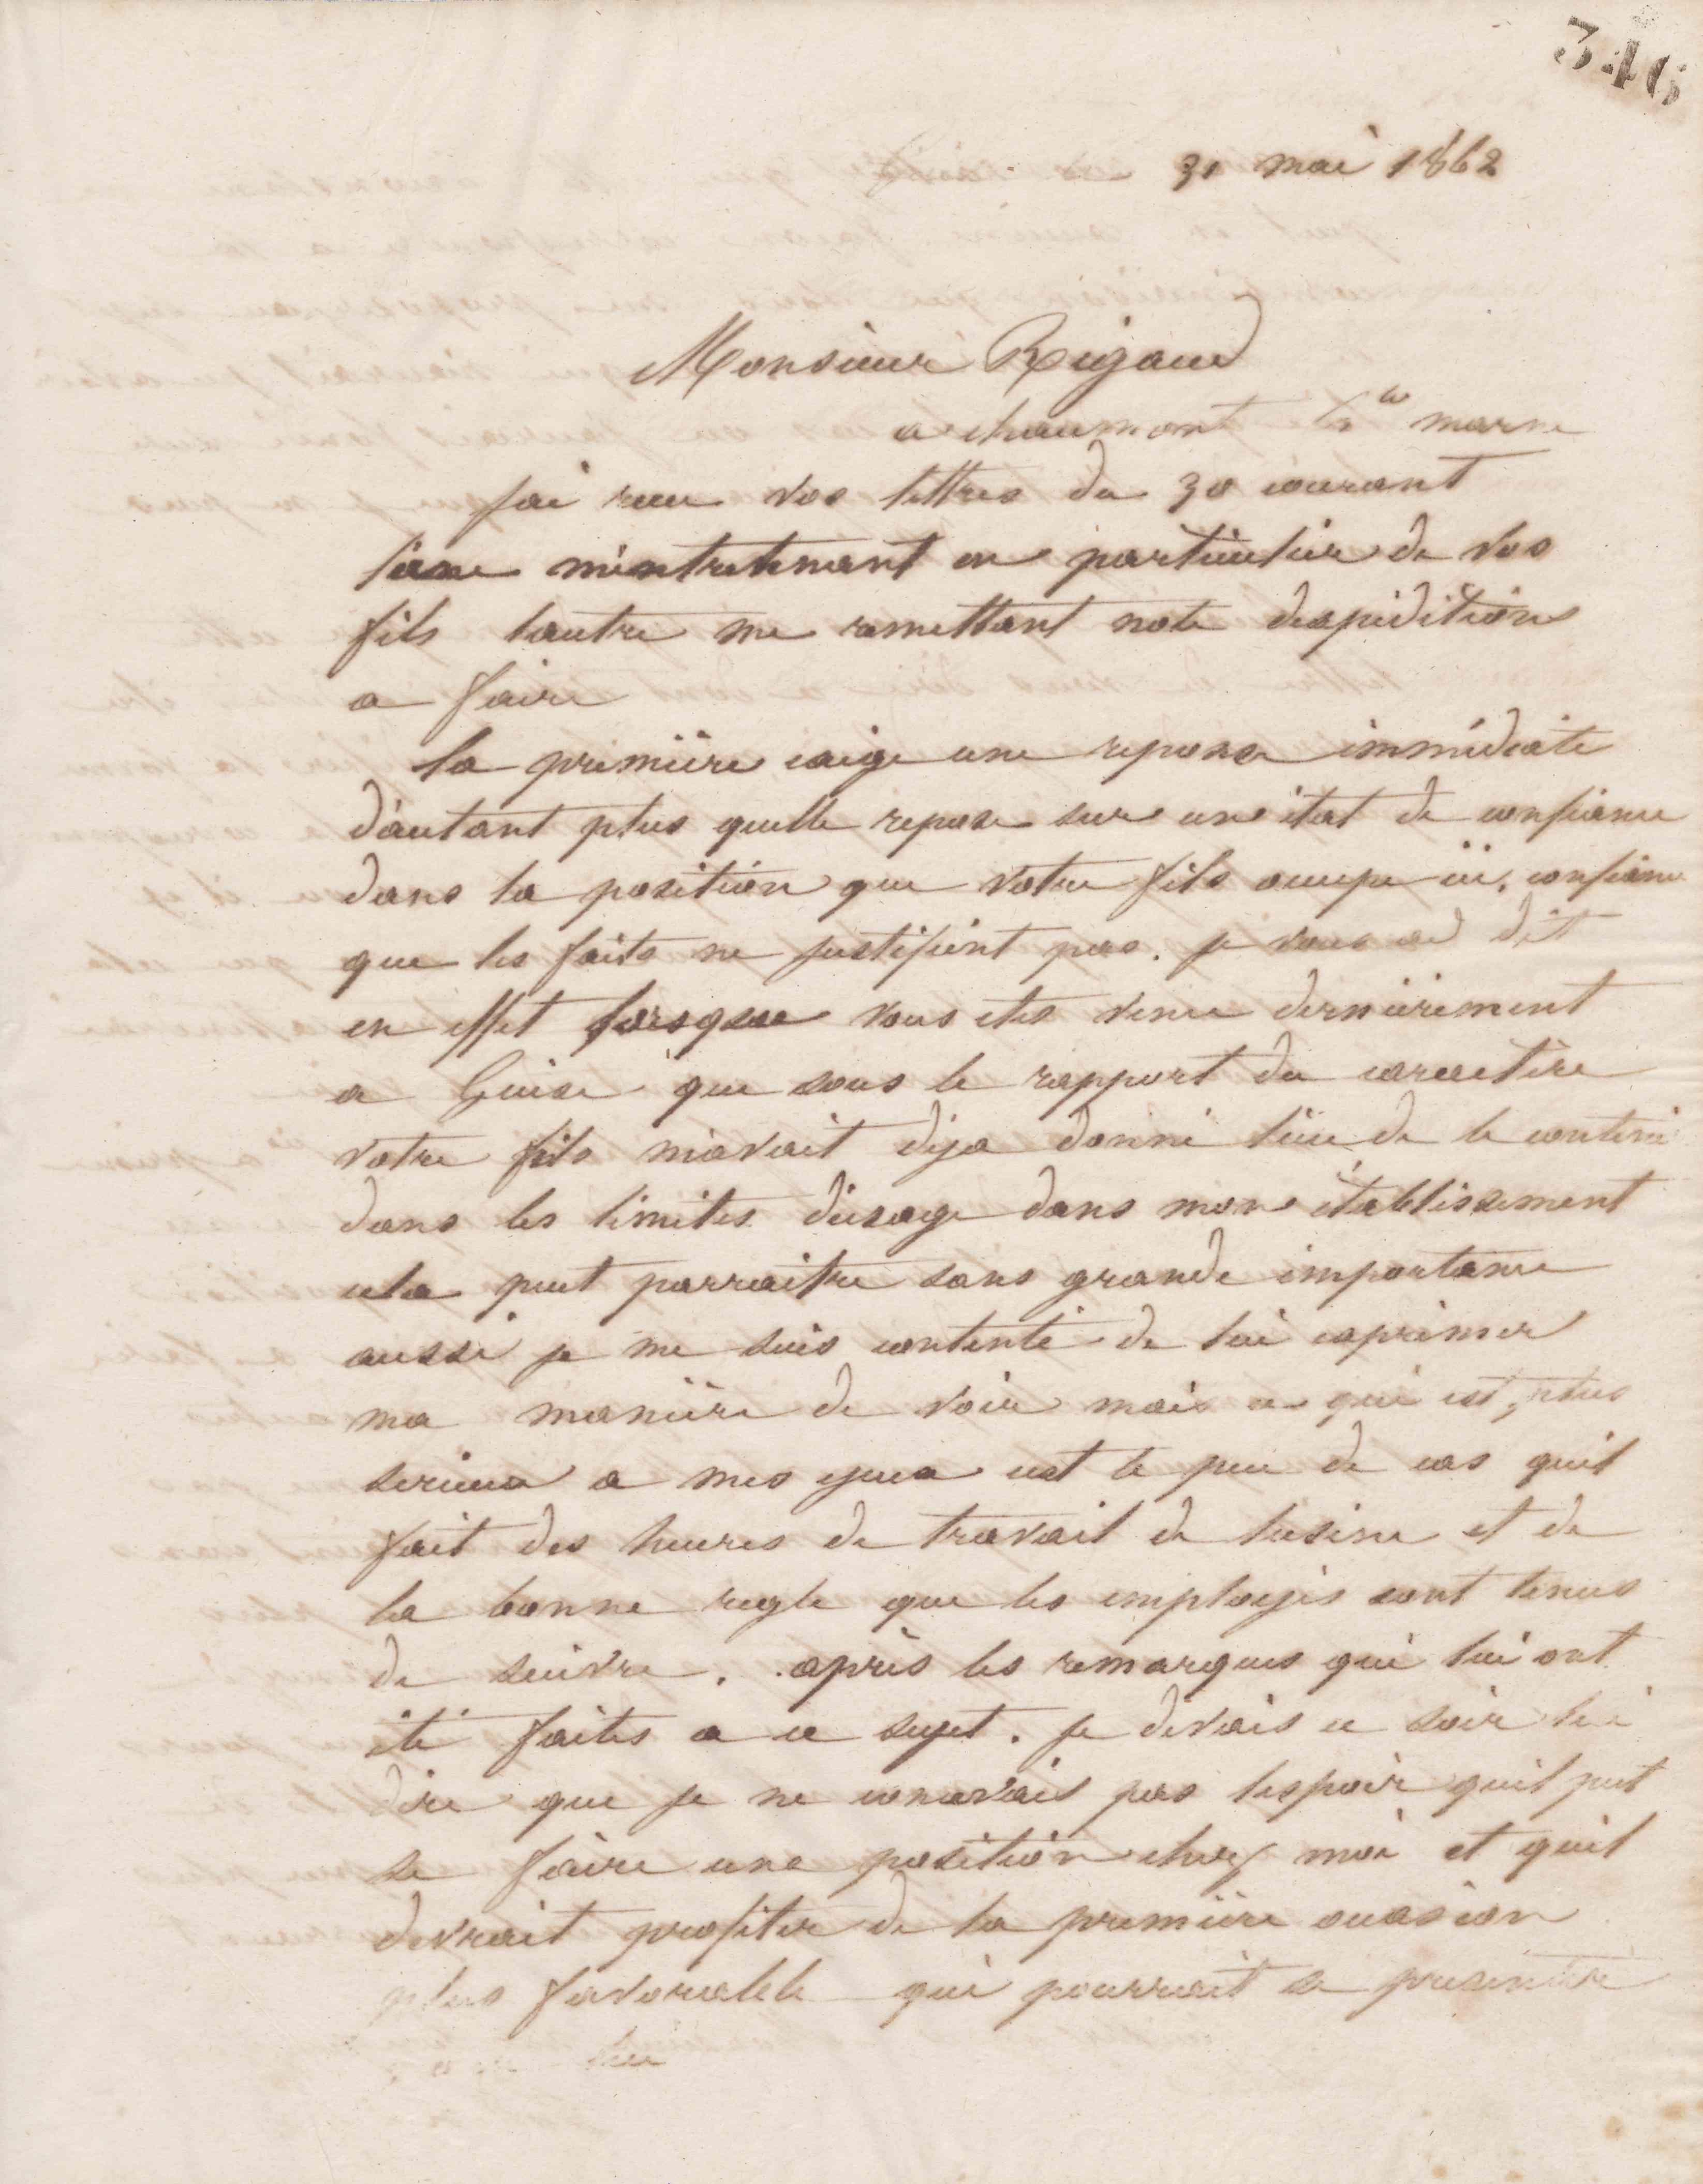 346
31 mai 1862
Monsieur Rigaud
a chaumont hte marne
jai recu vos lettres du 30 courant
l'une m'entretenant en particulier de vos
fils lautre me remettant note despéditions
a faire
la première exige une reponse immédiate
d'autant plus quelle repose sur un état de confiance
dans la position que votre fils occupe ici, confiance
que les faits ne justifient pas. je vous ai dit
en effet lorsque vous etes venu dernièrement
a Guise que sous le rapport du caractère
votre fils m'avait déja donné lieu de le contenir
dans les limites d'usage dans mon établissement
cela peut parraitre sans grande importance
aussi je me suis contenté de lui exprimer
ma manière de voir mais ce qui est plus
serieux a mes yeux cest le peu de cas quil
fait des heures de travail de lusine et de
la bonne regle que les employés sont tenus
de suivre. après les remarques qui lui ont
été faites a ce sujet. je devais ce soir lui
dire que je ne conservais pas lespoir quil put
se faire une position chez moi et quil
devrait profiter de la première occasion
plus favorable qui pourrait se presenter
lui